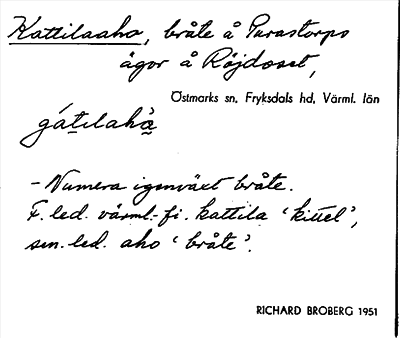 Kattilaaho, bråte å Purastorps
ägor å Röjdoset,
Östmarks sn, Fryksdals hd, Värml. län
gát̠ilahà̠
– Numera igenväxt bråte.
F. led. värml.-fi. kattila 'kittel',
sen. led. aho 'bråte'.
RICHARD BROBERG 1951